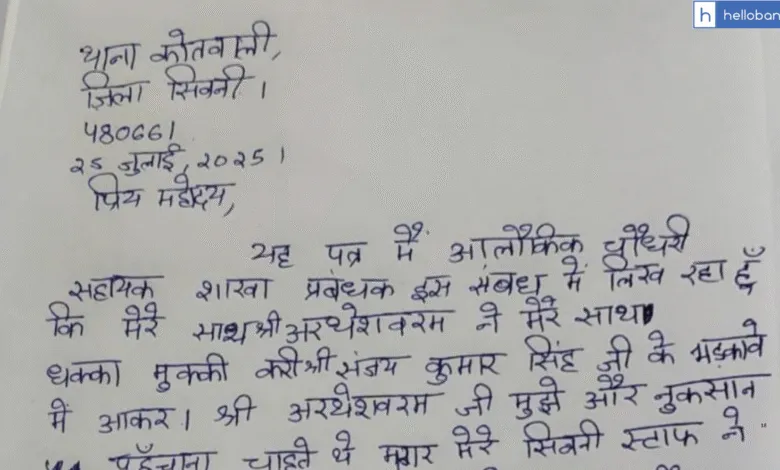 h helloban
थाना कोतवाली,
ज़िला सिवनी।
480661
25 जुलाई, 2025।
प्रिय महोदय,
यह पत्र मैं आलौकिक चौधरी
सहायक शाखा प्रबंधक इस संबंध में लिख रहा हूँ
कि मेरे साथ श्री अरथेशवरम ने मेरे साथ
धक्का मुक्की करी श्री संजय कुमार सिंह जी के भड़कावे
में आकर। श्री अरथेशवरम जी मुझे और नुकसान
पहुँचाना चाहते थे मगर मेरे सिवनी स्टाफ ने